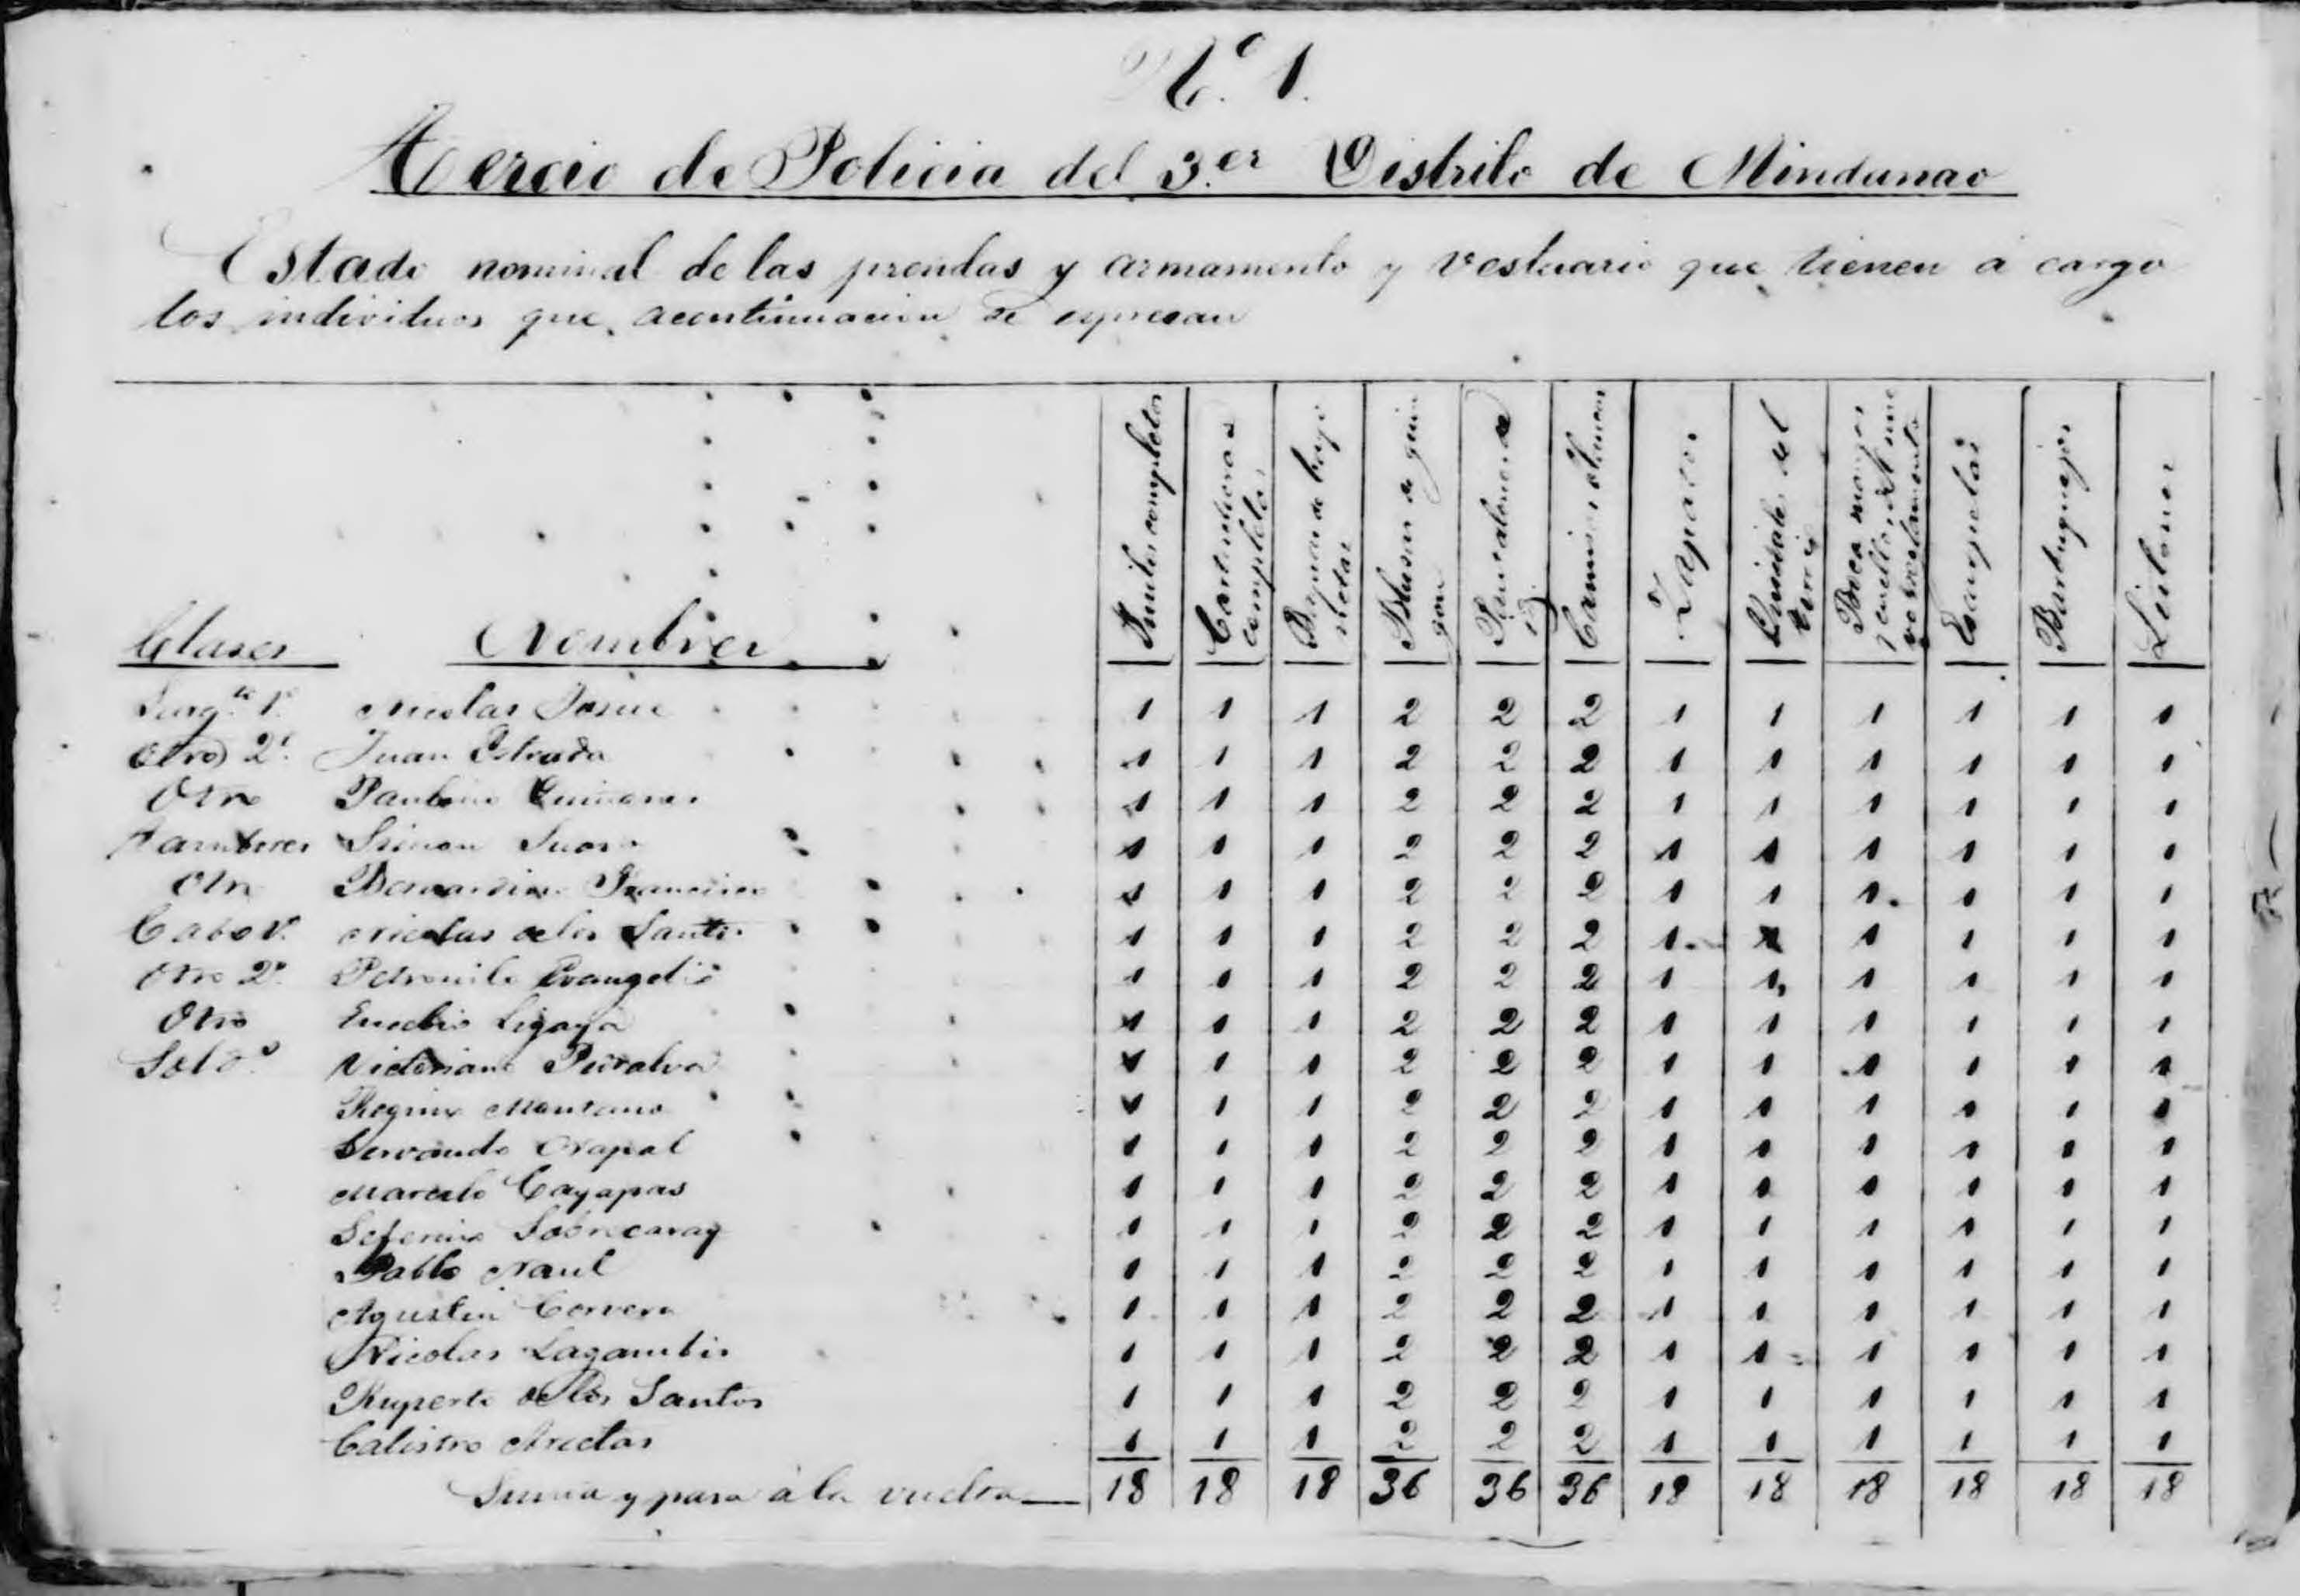 Nº 1.
Tercio de Policia del 3.er Distrito de Mindanao
Estado nominal de las prendas y armamento y vestuario que tienen á cargo
los individuos que acontinuacion se espresan
Clases Nombres Fusiles completos Cartucheras completas Baquetas de Blusas de guin gon Pantalones de id Camisas blancas Zapatos del tercio Boca mangas y cuello Escarpelas Barbuquejos Listones
Sarg.to 1º Nicolas Josue 1 1 1 2 2 2 1 1 1 1 1 1
Otro 2º Juan Estrada 1 1 1 2 2 2 1 1 1 1 1 1
Otro Paulino 1 1 1 2 2 2 1 1 1 1 1 1
Tambores Simon 1 1 1 2 2 2 1 1 1 1 1 1
Otro Bernardino Francisco 1 1 1 2 2 2 1 1 1 1 1 1
Cabo 1º Nicolas delos Santos 1 1 1 2 2 2 1 1 1 1 1 1
Otro 2º Petronilo Evangelio 1 1 1 2 2 2 1 1 1 1 1 1
Otro Eusebio Ligaya 1 1 1 2 2 2 1 1 1 1 1 1
Sold.º Victoriano 1 1 1 2 2 2 1 1 1 1 1 1
Regino Manzano 1 1 1 2 2 2 1 1 1 1 1 1
Servando Orapal 1 1 1 2 2 2 1 1 1 1 1 1
Marcelo Cayapas 1 1 1 2 2 2 1 1 1 1 1 1
Seferino Sobrecaray 1 1 1 2 2 2 1 1 1 1 1 1
Pablo Naul 1 1 1 2 2 2 1 1 1 1 1 1
Agustin Corvera 1 1 1 2 2 2 1 1 1 1 1 1
Nicolas Lagambis 1 1 1 2 2 2 1 1 1 1 1 1
Ruperto delos Santos 1 1 1 2 2 2 1 1 1 1 1 1
Calistro 1 1 1 2 2 2 1 1 1 1 1 1
Suma y pasa á la vuelta 18 18 18 36 36 36 18 18 18 18 18 18